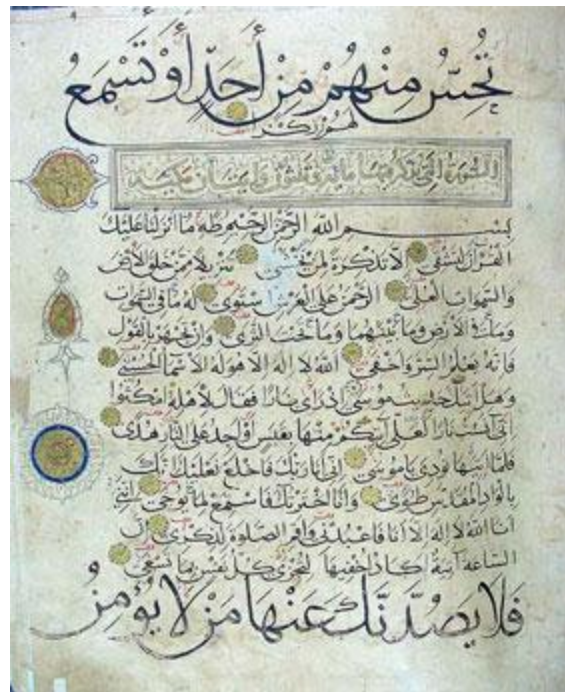 تُحِسُّ مِنْهُمْ مِنْ أَحَدٍ أَوْ تَسْمَعُ
لهم ركزا
السورة التي يذكر فيها مائة وثلثون مكية
بسم الله الرحمن الرحيم طه ما انزلنا عليك
القرآن لتشقى الا تذكرة لمن يخشى تنزيلا ممن خلق الارض
والسموات العلى الرحمن على العرش استوى له ما في السموات
وما في الارض وما بينهما وما تحت الثرى وان تجهر بالقول
فانه يعلم السر واخفى الله لا اله الا هو له الاسماء الحسنى
وهل اتيك حديث موسى اذ راى نارا فقال لاهله امكثوا
اني آنست نارا لعلي آتيكم منها بقبس او اجد على النار هدى
فلما اتيها نودي ياموسى اني انا ربك فاخلع نعليك انك
بالواد المقدس طوى وانا اخترتك فاستمع لما يوحى انني
انا الله لا اله الا انا فاعبدني واقم الصلاة لذكرى ان
الساعة آتية اكاد اخفيها لتجزى كل نفس بما تسعى
فَلَا يَصُدَّنَّكَ عَنْهَا مَنْ لَا يُؤْمِنُ